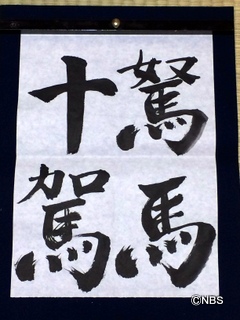 駑馬
十駕
©NBS